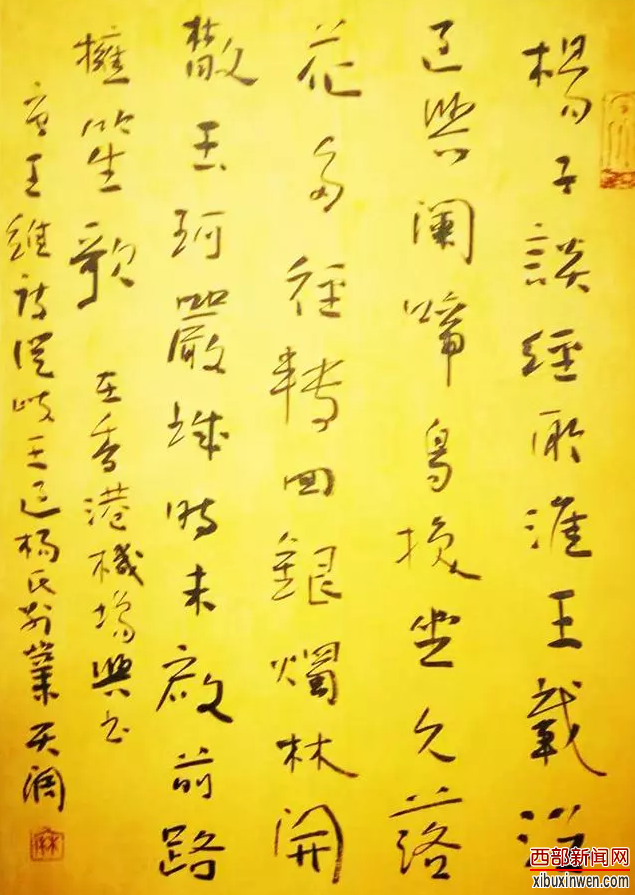 楊子談經所淮王載酒
過興闌啼鳥換坐久落
花多徑轉回銀燭林開
散玉珂嚴城時未啟前路
擁笙歌 香港機場興书
唐王維詩從岐王過楊氏別業天
西部新闻网
xibuxinwen.com